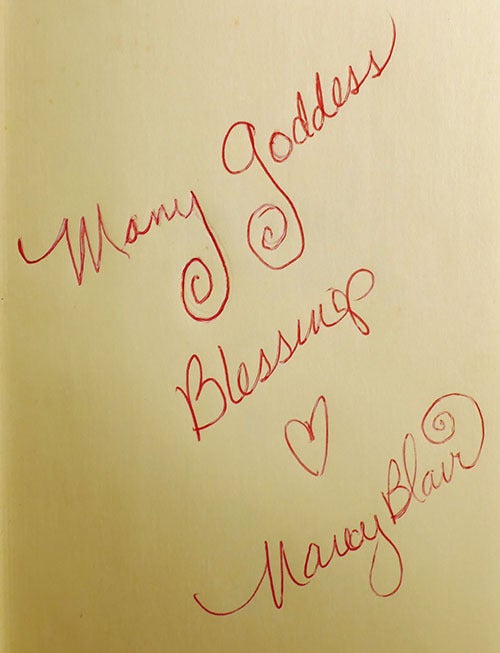 Many Goddess
Blessings
♡
Nancy Blair